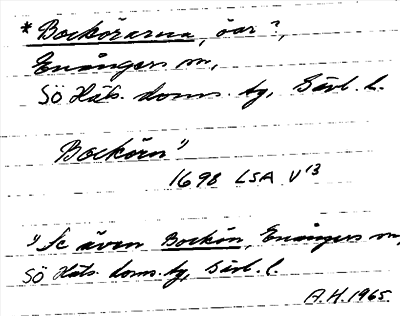 *Bockörarna, öar?,
Enångers sn,
Sö Häls. doms. tg, Gävl. l.
Bockörn"
1698 LSA V 13
"Se även Bockön, Enångers sn,
Sö Häls. doms. tg, Gävl. l.
A.H. 1965